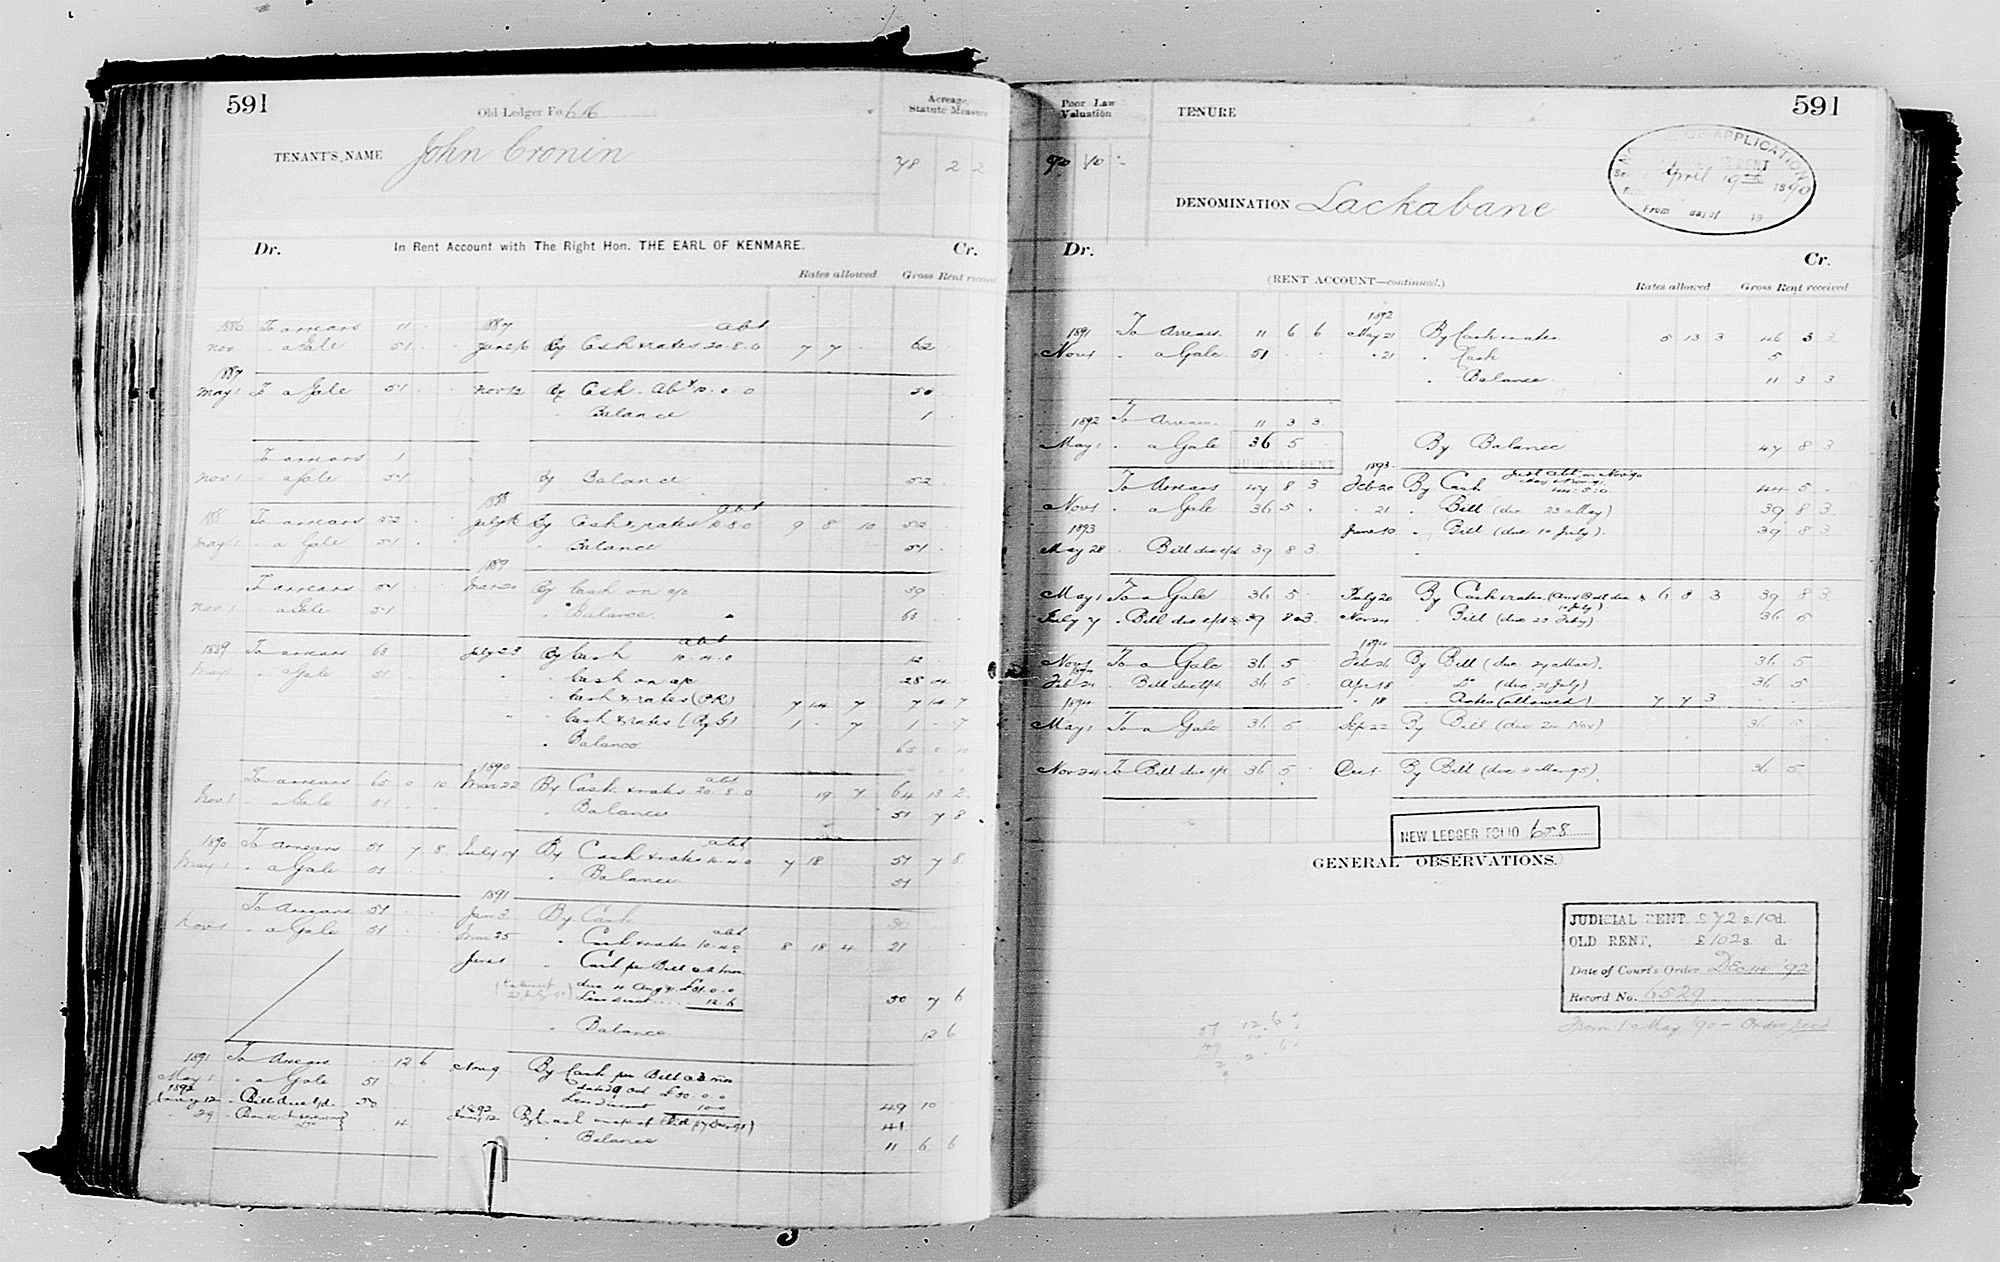 591
Old Ledger Fo. 616
Acreage, Statute Measure
TENANT'S NAME John Cronin
78 2 2
Dr. In Rent Account with The Right Hon. THE EARL OF KENMARE. Cr.
Rates allowed Gross Rent received
1886 To arrears 11 1887 abt
Nov a Gale 51 By Cash & rates 20.8.0 7 7 62
1887
May 1 To a Gale 51 Nov 12 By Cash Abt 10.0.0 50
" Balance 1
To arrears 1
Nov 1 a Gale 51 By Balance 52
1888 abt
1888 To arrears 52 By Cash & rates 10.8.0 9 8 10 52
May 1 a Gale 51 " Balance 51
1889
To arrears 51 Mar 20 By Cash on a/c 39
Nov 1 a Gale 51 " Balance 63
1889 To arrears 63 July 23 By Cash abt 10.4.0 12
May 1 a Gale 51 " Cash on a/c 28 4
" Cash & rates (P.R) 7 14 7 7 14 7
" Cash & rates (By G) 1 - 7 1 - 7
" Balance 65 0 10
1890
To arrears 65 0 10 Mar 22 By Cash & rates abt 20.8.0 19 7 64 13 2
Nov 1 a Gale 51 " Balance 51 7 8
1890 To arrears 51 7 8 July 17 By Cash & rates abt 10.4.0 7 18 51 7 8
May 1 " a Gale 51 " Balance 51
1891
To Arrears 51 Jan 3 By Cash 30
Nov 1 " a Gale 51 Mar 25 " Cash & rates abt 10.4.0 8 18 4 21
June 1 " Cash per Bill
due 4 Aug
Less disct 12.6 50 7 6
" Balance 12 6
1891 To Arrears 12 6 Nov 9 By Cash per Bill
May 1 " a Gale 51
1892 Less disct 10.0 49 10
Jany 12 Bill due 50
1892
29 4 Jany 12 By Cash 41
" Balance 11 6 6
Poor Law Valuation
TENURE
591
90 10 -
APPLICATION
April 19th 1890
From day of 18
DENOMINATION Lackabane
Dr. Cr.
(RENT ACCOUNT—continued.)
Rates allowed Gross Rent received
1892
1891 To Arrears 11 6 6 May 21 By Cash & rates 5 13 3 46 3 3
Nov 1 " a Gale 51 " 21 " Cash 5
" Balance 11 3 3
1892 To Arrears 11 3 3
May 1 " a Gale 36 5 By Balance 47 8 3
JUDICIAL RENT
1893
To Arrears 47 8 3 Feb 20 By Cash 44 5
Nov 1 " a Gale 36 5 " 21 " Bill (due 23 May) 39 8 3
1893 June 10 " Bill (due 10 July) 39 8 3
May 28 " Bill due 39 8 3
May 1 To a Gale 36 5 July 20 By Cash & rates 6 8 3 39 8 3
July 7 " Bill due 39 8 3 Nov 24 " Bill (due 23 Feby) 36 5
1894
Nov 1 To a Gale 36 5 Feb 26 By Bill (due 27 Mar) 36 5
1894
Feb 24 " Bill due 36 5 Apr 18 Do (due 21 July) 36 5
1894 " 18 " Rates (allowed) 7 7 3
May 1 To a Gale 36 5 Sep 22 By Bill (due 20 Nov) 36 5
Nov 24 To Bill due 36 5 Dec 1 By Bill 36 5
NEW LEDGER FOLIO 658
GENERAL OBSERVATIONS.
JUDICIAL RENT, £72 s.10d.
OLD RENT, £102 s. d.
Date of Court's Order Dec 14 '92
Record No. 6529
From 1 May '90 - Order